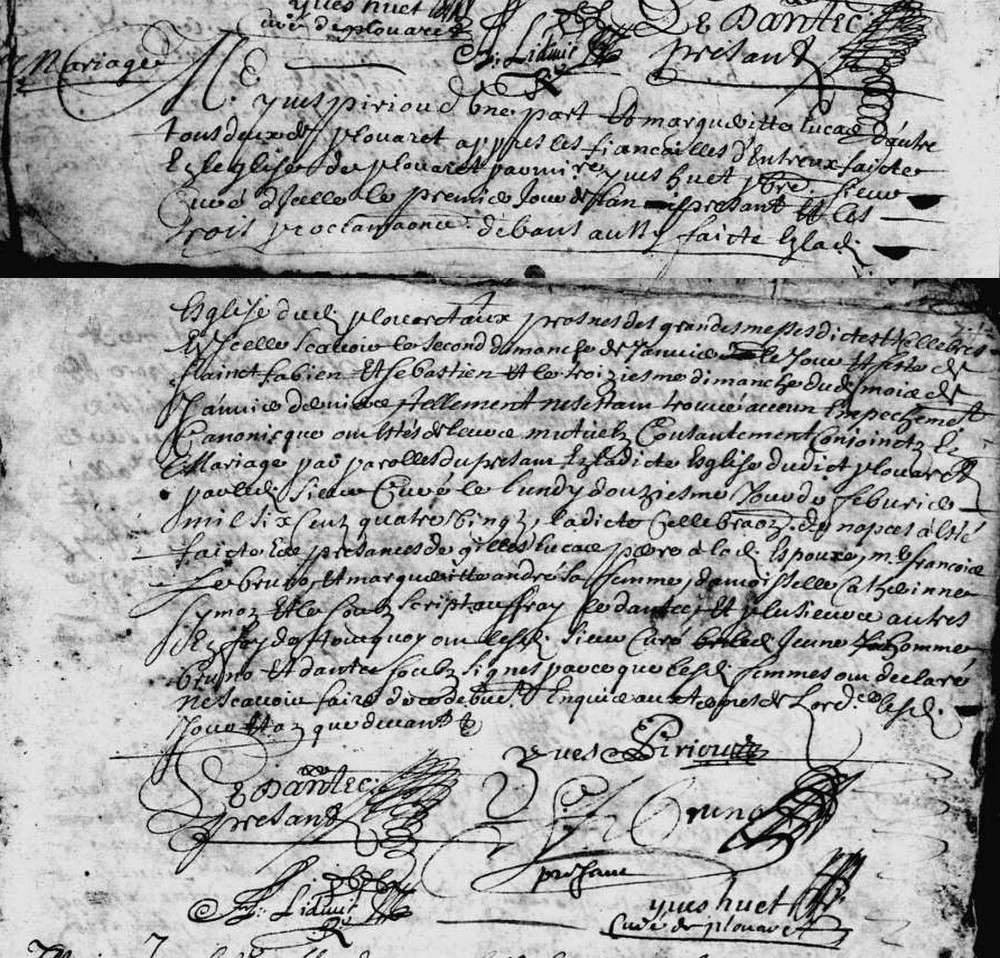 yves huet
curé de plouaret
Le Dantec
presant
Mariage
yves piriou d'une part Et margueritte lucas d'autre
tous deux de plouaret appres les fiancailles d'Entreux faicte
En leglise de plouaret par mire yves huet pbre sieur
Curé d'Icelle le premier Jour de l'an presant Et les
trois proclamaons de bans aussy faicte En lad.
Esglise dud. plouaret aux prosnes des grandes messes dictes et cellebres
En Icelle scavoir le second dimanche de Janvier le Jour et feste de
sainct fabien Et sebastien Et le troiziesme dimanche dud. mois de
Janvier dernier tellement ne sestant trouvé aucun Empechement
Canonicque ont Estés de leurs mutuels Consantement Conjoinctz En
Mariage par parolles de presant En ladicte Esglise dudict plouaret
par led. sieur Curé le lundy douziesme Jour de feburier
mil six Cent quatre vingt, ladicte Cellebraon de nopces a Esté
faicte En presances de gilles lucas pere a lad. Espouxe, m.e francois
Le bruno Et marguerite andré sa femme, damoisselle Catherinne
symon Et le soubz script auffray le dantec, Et plusieurs autres
En foy de quoy ont lesd. sieur Curé Jeune homme
bruno Et dantec soubz signés parce que lesd. femmes ont declaré
ne scavoir faire de ce debue. Enquis aux termes de Lord.ce lesd.
Jour Et an que devant
yves Piriou
Le Dantec
presant
Bruno
presant
yves huet
Curé de plouaret